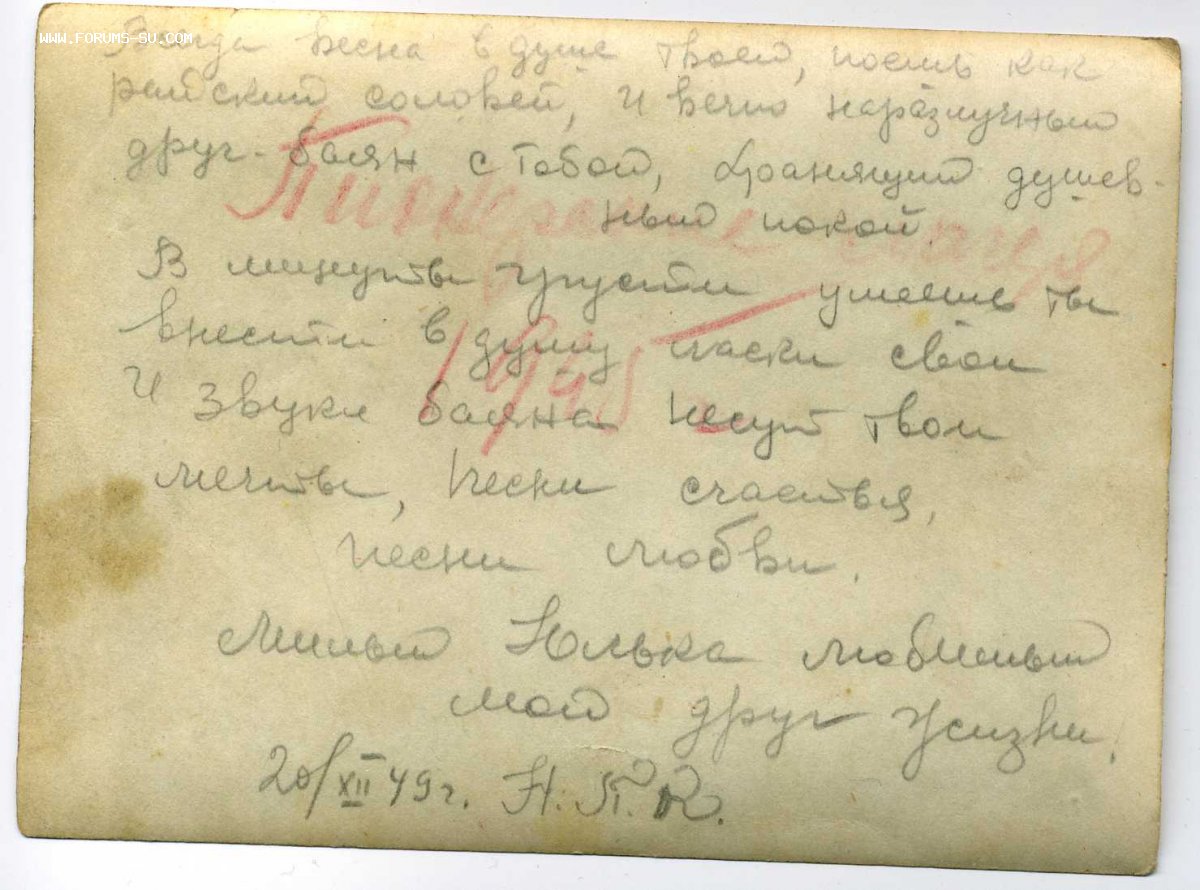 WWW.FORUMS-SU.COM
Всегда весна в душе твоей, поешь как
райский соловей, и вечно наразлучный
друг - баян с тобой, хранящий душев-
ный покой.
В минуты грусти умеешь ты
внести в душу ласки свои
И звуки баяна несут твои
мечты, песни счастья,
песни любви.
1945
Милый Юлька любимый
мой друг жизни.
20/XII 49г. Н. П. К.